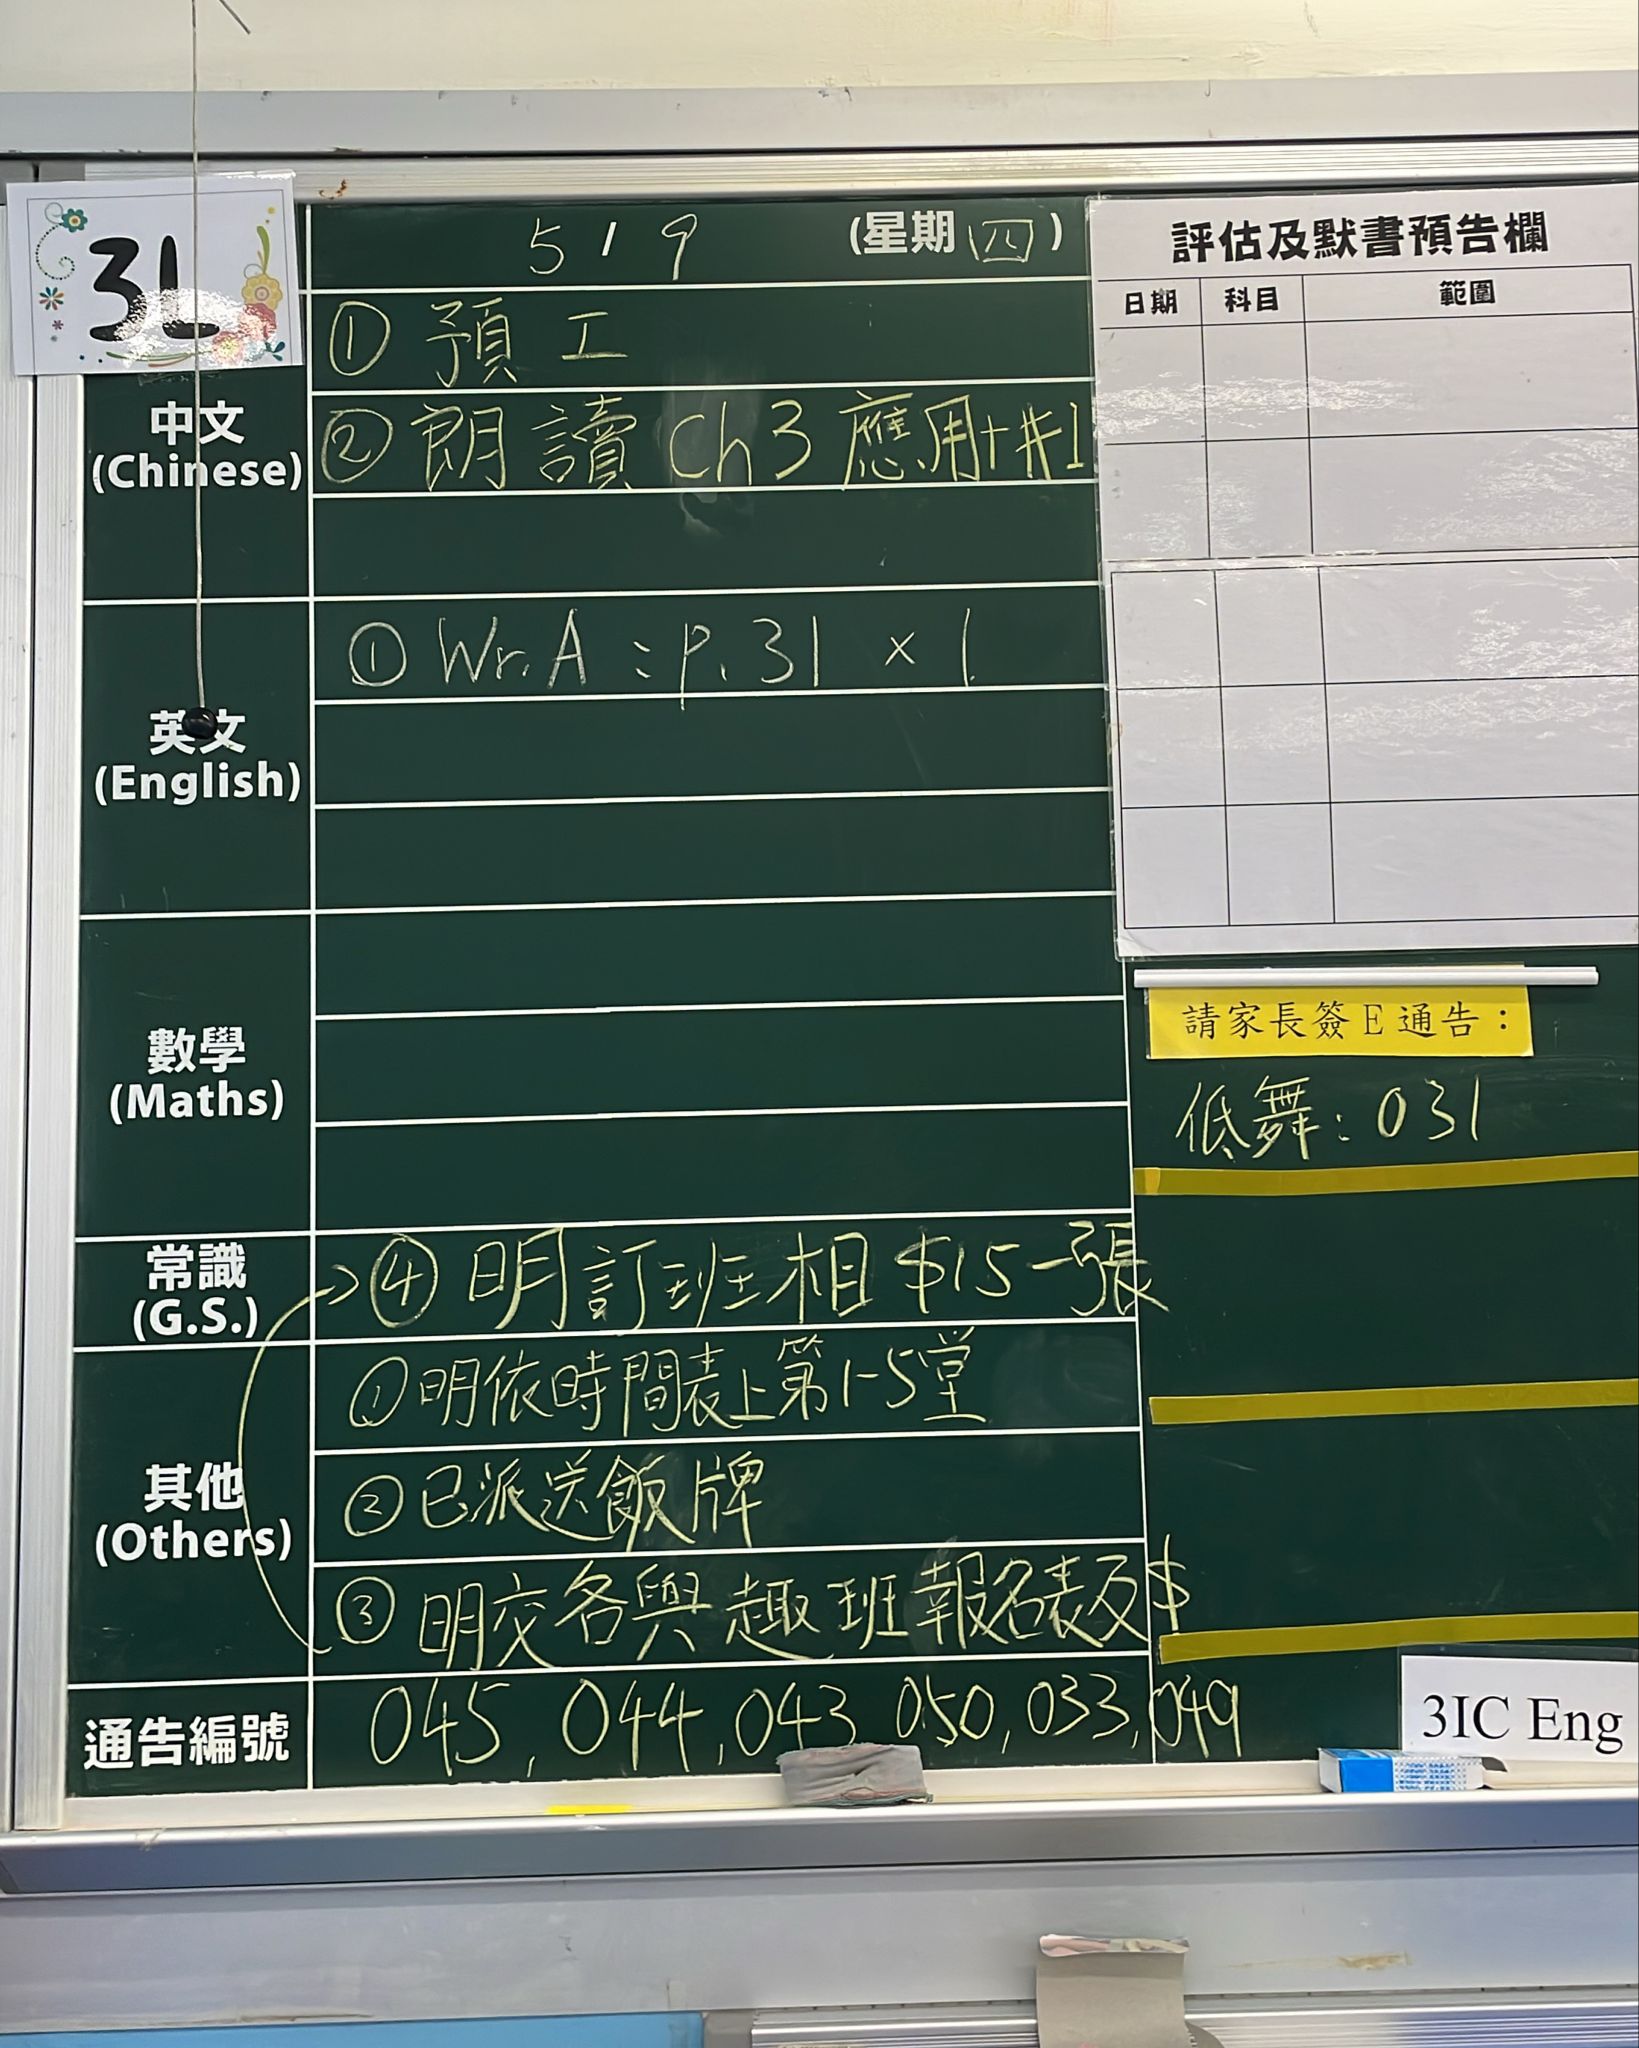 3L
5/9 (星期四)
評估及默書預告欄
日期 科目 範圍
中文
(Chinese)
① 預工
② 朗讀 Ch3 應用+#1
英文
(English)
① Wr.A : p.31 × 1
數學
(Maths)
請家長簽E通告：
低舞: 031
常識
(G.S.)
④ 明訂班相 $15一張
其他
(Others)
① 明依時間表上第1-5堂
② 已派送飯牌
③ 明交各興趣班報名表及$
通告編號
045, 044, 043, 050, 033, 049
3IC Eng